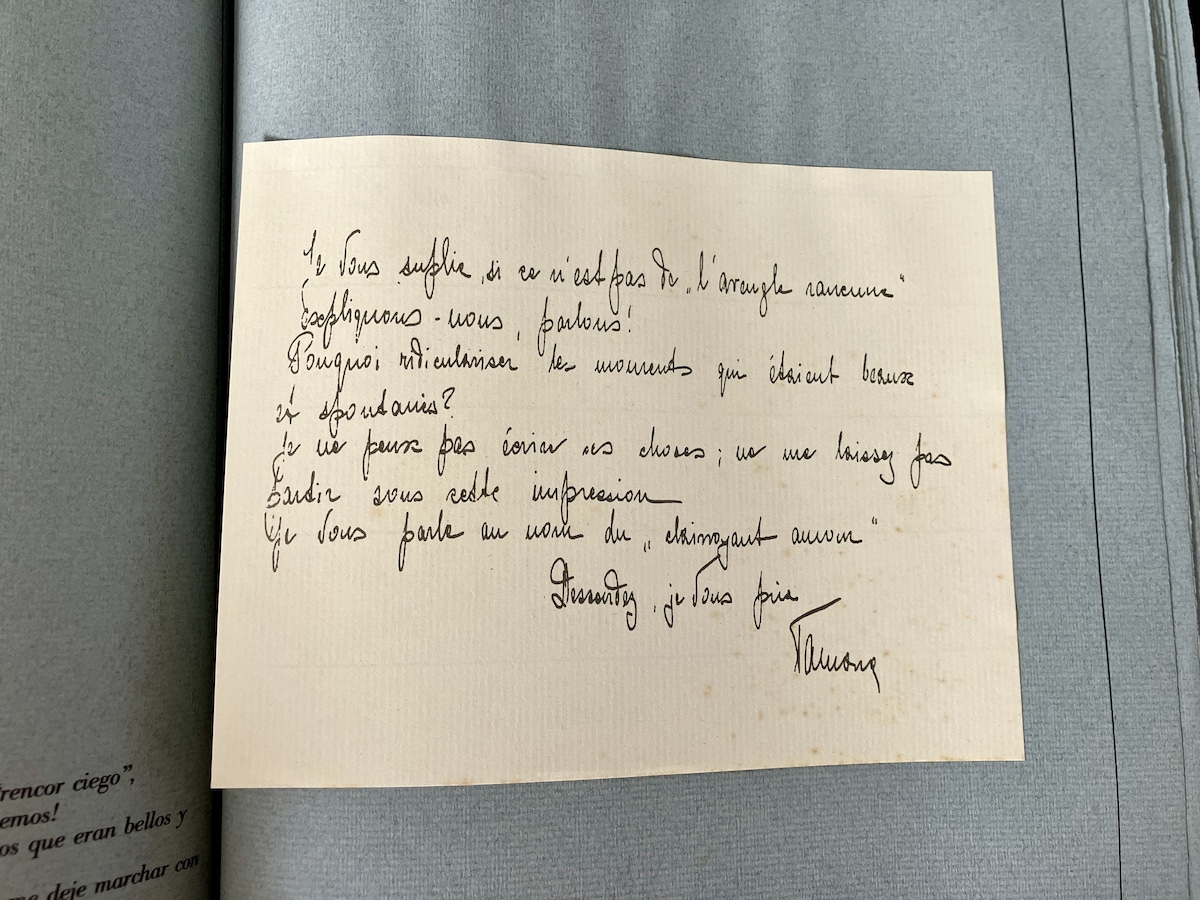 Je Vous suplie, si ce n'est pas de „l'aveugle rancune"
Expliquons-nous, parlons!
Pourquoi ridiculariser les moments qui étaient beaux
et spontanés?
Je ne peux pas écrire ces choses; ne me laissez pas
Partir sous cette impression
Je Vous parle au nom du „clairvoyant amour"
Descendez, je Vous prie
Tamara
rencor ciego”,
emos!
os que eran bellos y
me deje marchar con